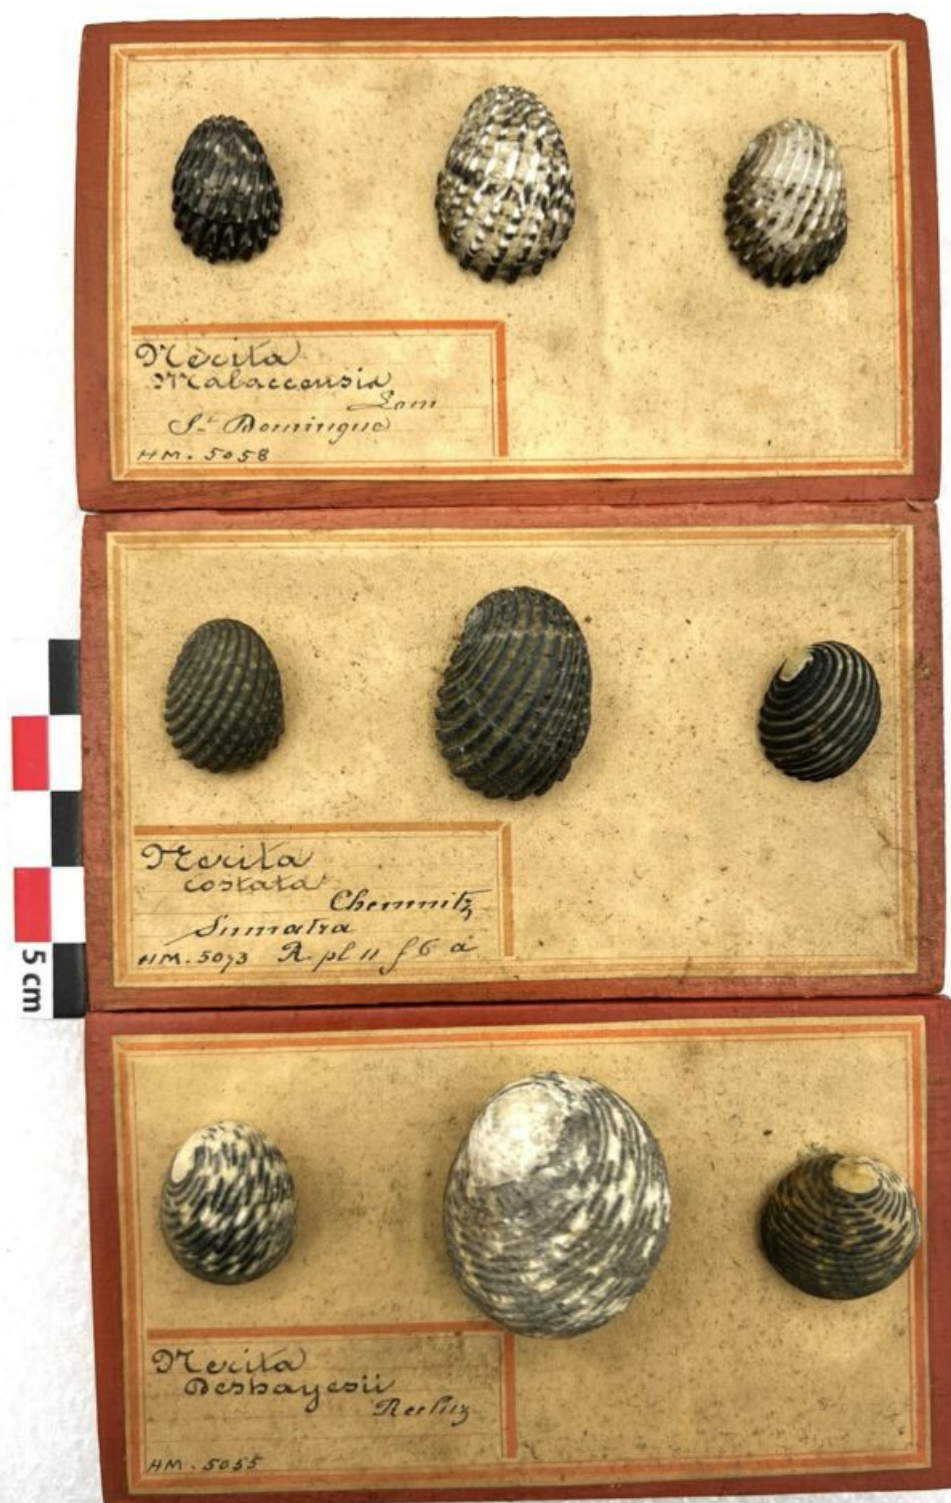 Nerita
Malaccensis
Lam
St Domingue
HM. 5058
Nerita
costata
Chemnitz
Sumatra
HM. 5073 R. pl 11 f 6 a
5 cm
Nerita
Deshayesii
Recluz
HM. 5055